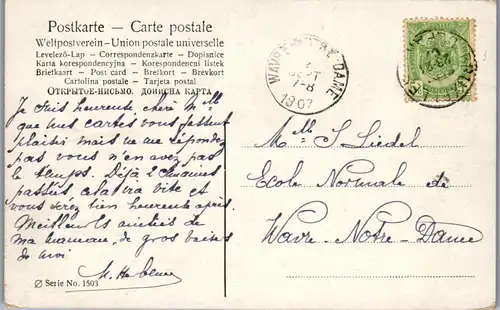 Postkarte – Carte postale
Weltpostverein – Union postale universelle
Levelező-Lap – Correspondenzkarte – Dopisnice
Karta korespondencyjna – Korespondencni listek
Briefkaart – Post card – Brefkort – Brevkort
Cartolina postale – Tarjeta postal
Открытое-письмо. ДОПИСНА КАРТА
Je suis heureuse chère Mlle
que mes cartes vous fassent
plaisir mais ne me répondez
pas vous n'en avez pas
le temps. Déjà 2 semaines
passées cela ira vite et
vous serez bien heureuse après.
Meilleures amitiés de
ma maman, de gros baisers
de moi
Serie No. 1503
WAVRE-NOTRE-DAME
SEPT
7-8
1907
Mlle S. Liedel
Ecole Normale de
Wavre-Notre-Dame